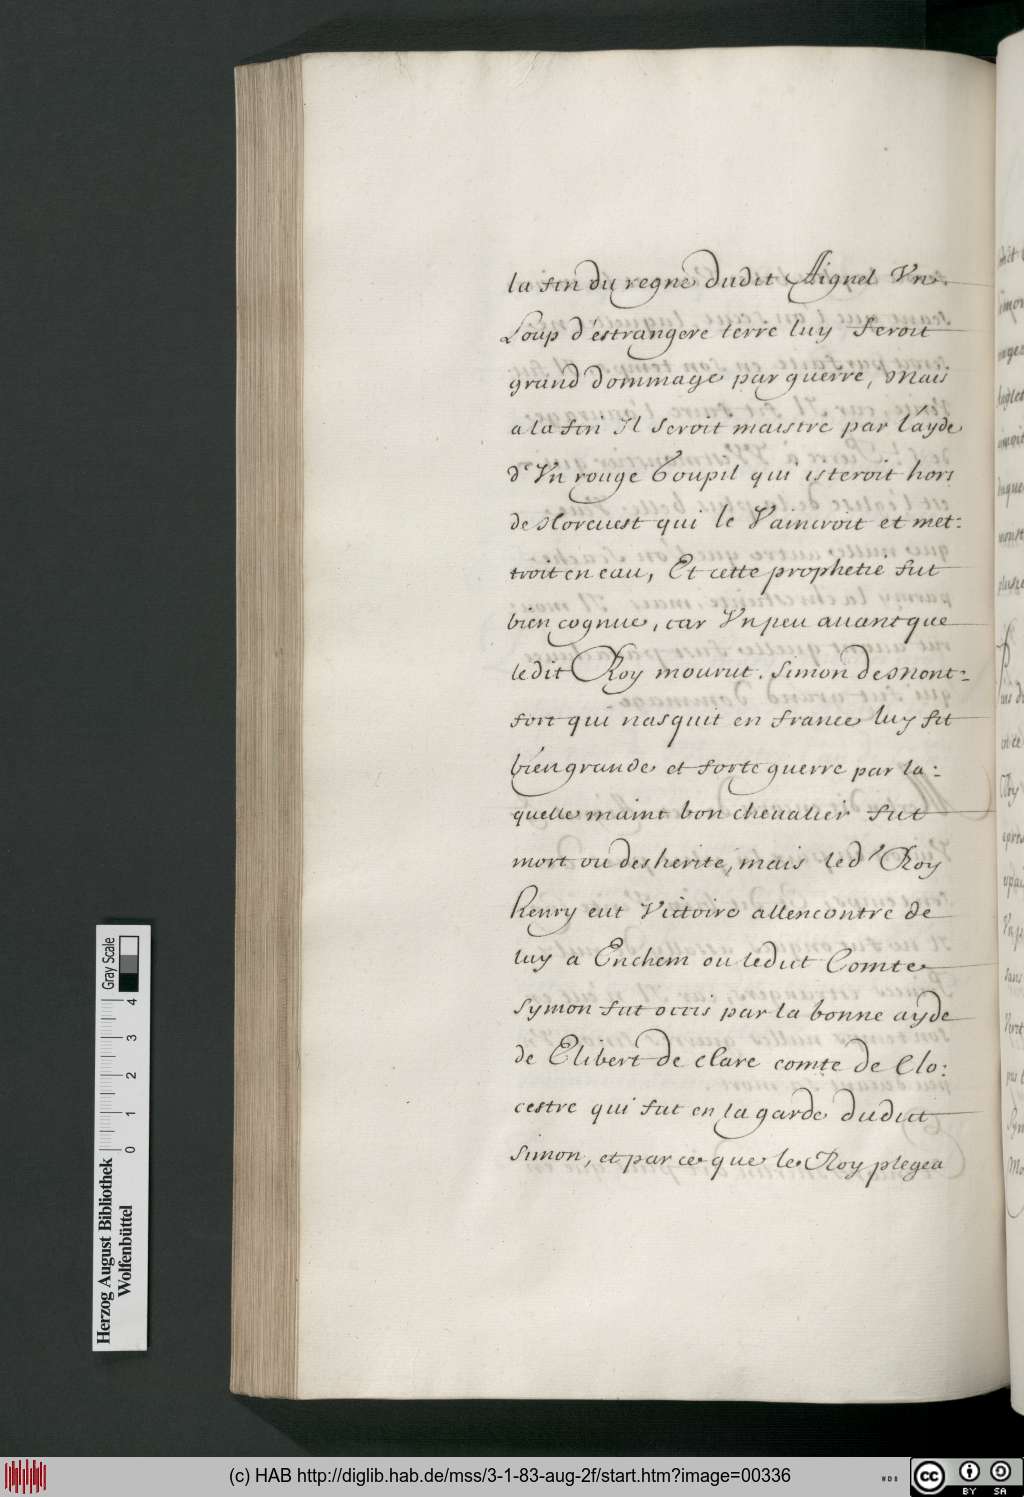 la fin du regne dudit Aignel Vn
Loup d'estrangere terre luy feroit
grand dommage par guerre, Mais
a la fin Il seroit maistre par l'ayde
d'Vn rouge Goupil qui isteroit hors
de Norvest qui le Vaincroit et met:
troit en eau, Et cette prophetie fut
bien cognue, car Vn peu auant que
ledit Roy mourut. Simon de Mont:
fort qui nasquit en france luy fit
bien grande et forte guerre par la:
quelle maint bon cheualier fut
mort ou desherite, mais led.t Roy
henry eut Victoire allencontre de
luy a Enchem ou ledict Comte
Symon fut occis par la bonne ayde
de Elibert de clare comte de Clo:
cestre qui fut en la garde dudict
Simon, et par ce que le Roy plegea
Herzog August Bibliothek
Wolfenbüttel
0 1 2 3 4
Gray Scale
(c) HAB http://diglib.hab.de/mss/3-1-83-aug-2f/start.htm?image=00336
WDB
cc BY SA